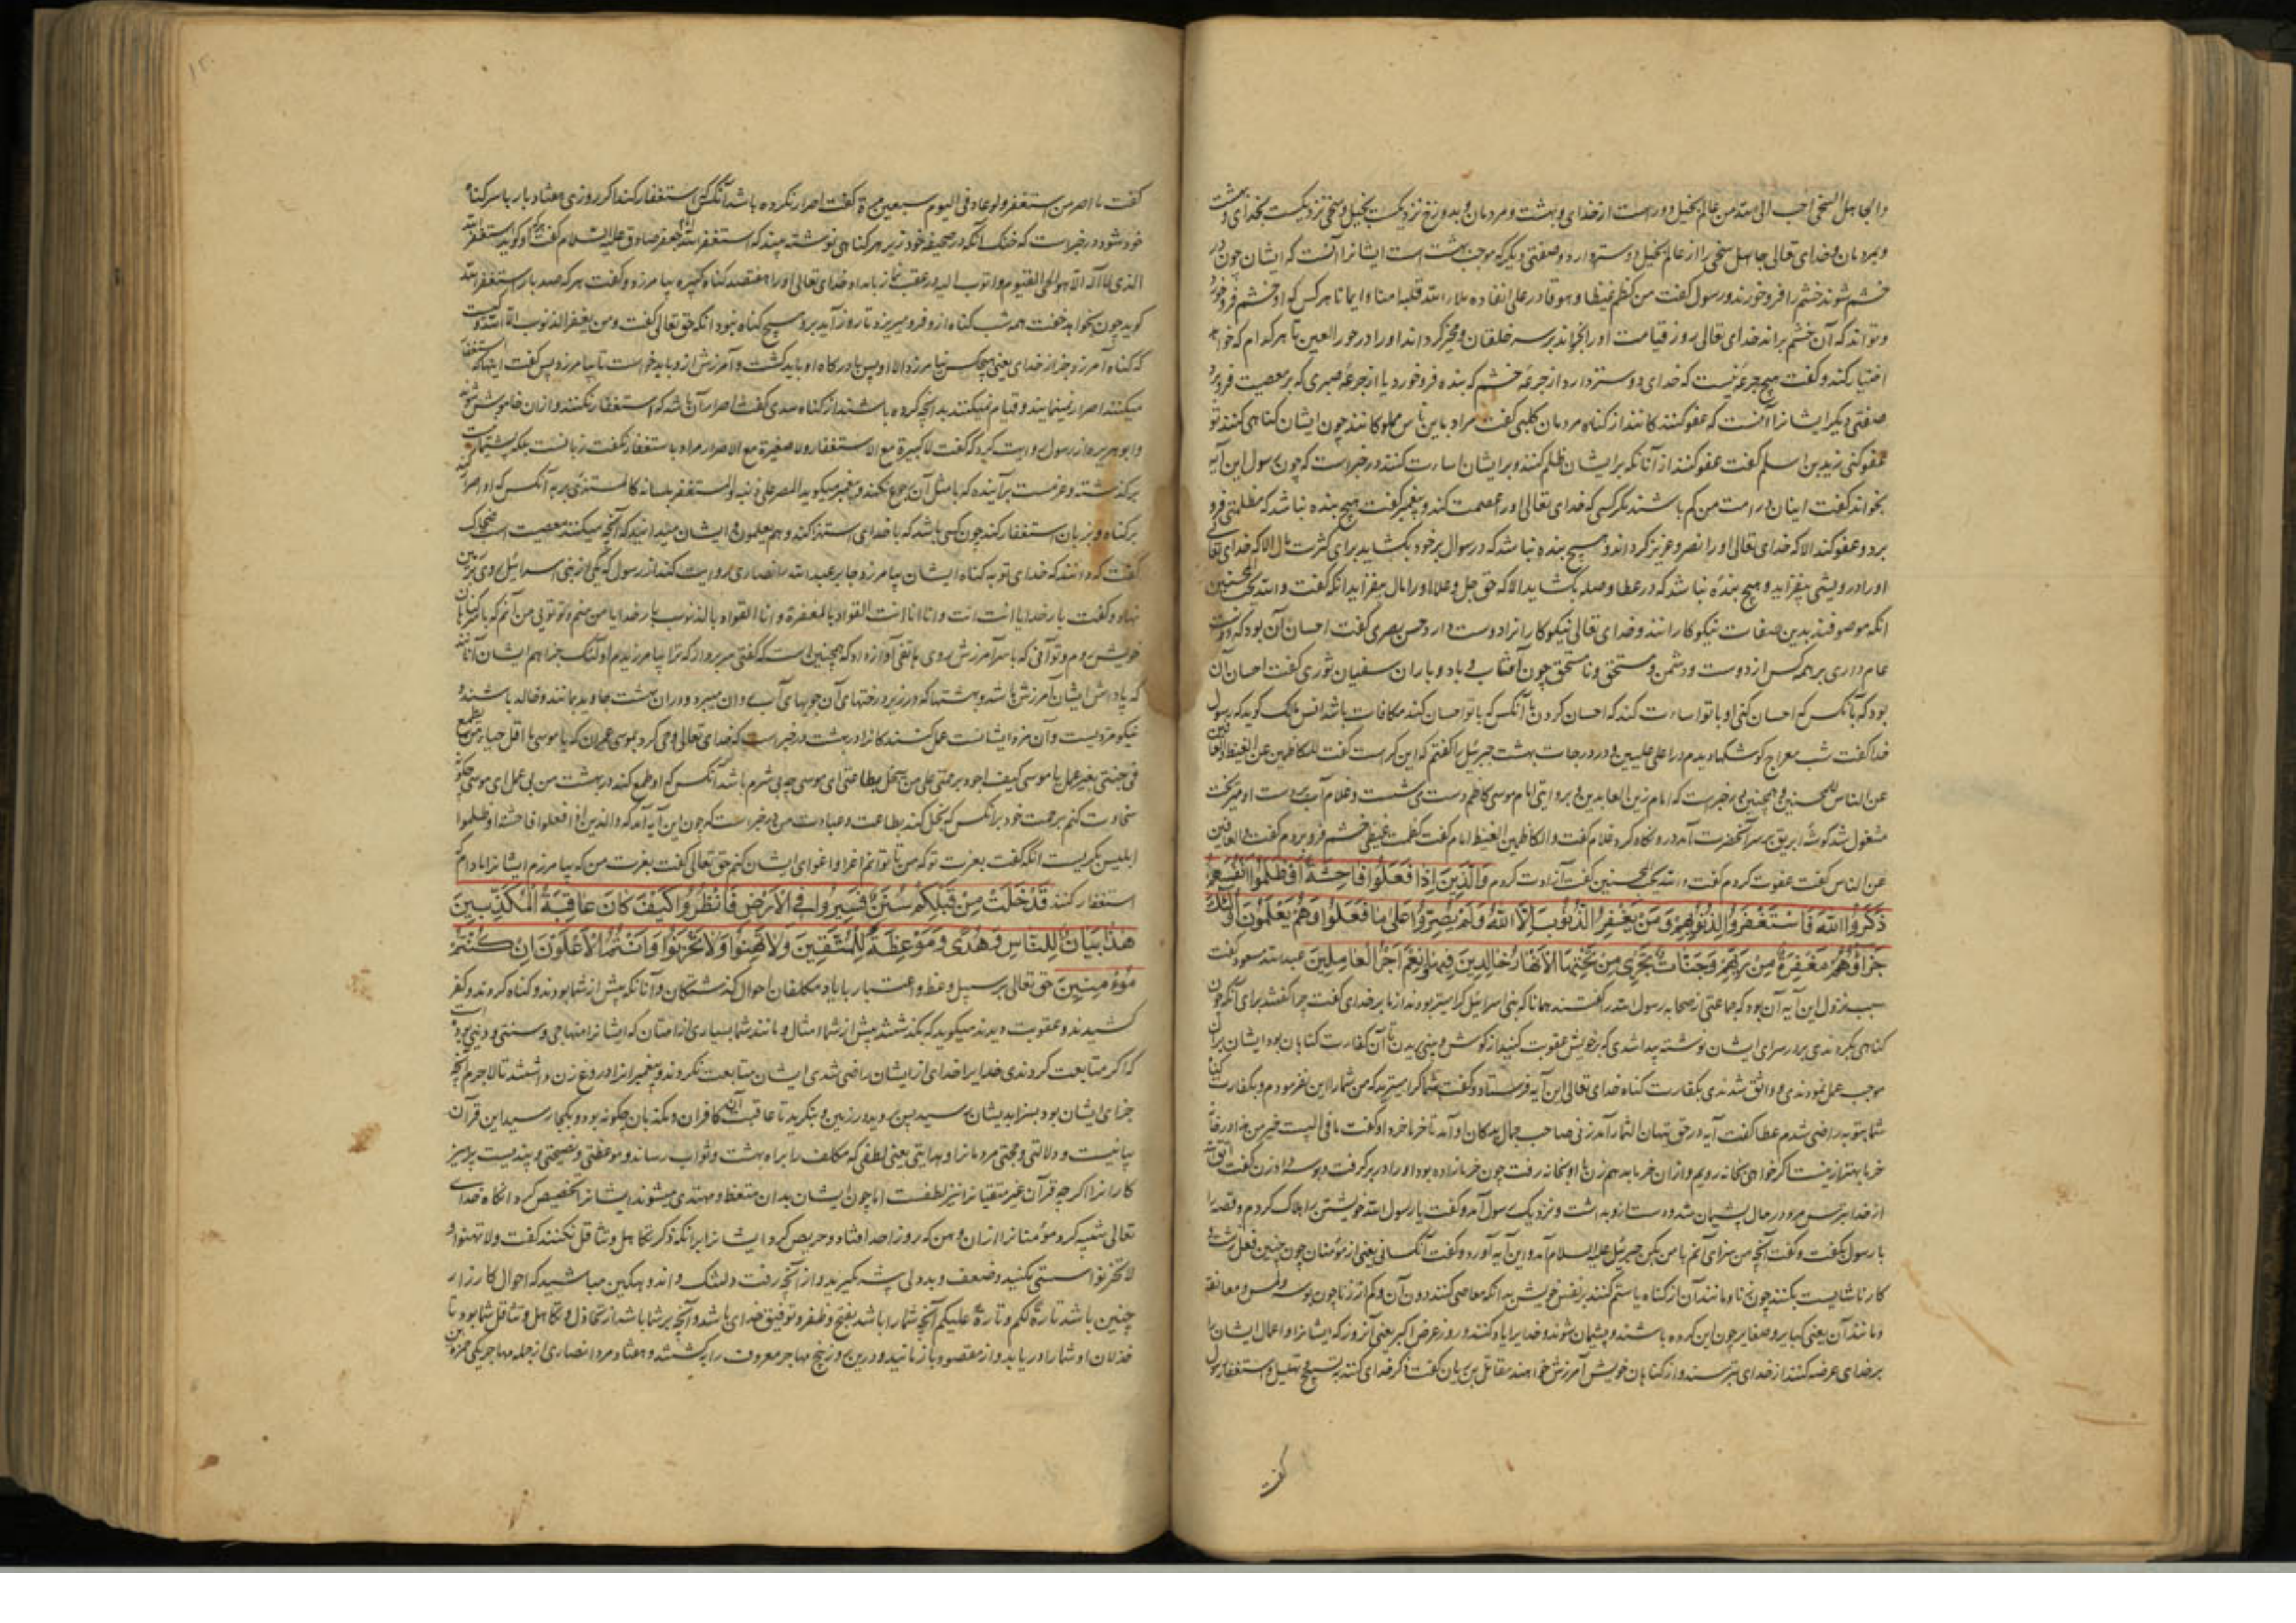 والجاهل السخی احب الی الله من عالم بخیل دور است از خدای و بهشت و مردمان و بدوزخ نزدیکست بخیل و سخی نزدیکست بخدای و بهشت
و بمردمان و خدای تعالی جاهل سخی را از عالم بخیل دوستر دارد و صفتی دیگر که موجب بهشت است ایشانرا آنست که ایشان چون در
خشم شوند خشم را فرو خورند و رسول گفت من کظم غیظا و هو قادر علی انفاده ملأ الله قلبه امنا و ایمانا هر کس که او خشم فرو خورد
و تواند که آن خشم براند خدای تعالی روز قیامت او را بخواند بر سر خلقان و مخیر گرداند او را در حور العین تا هر کدام که خواهد
اختیار کند و گفت هیچ جرعه نیست که خدای دوستر دارد از جرعه خشم که بنده فرو خورد یا از جرعه صبری که بر معصیت فرو برد
صفتی دیگر ایشانرا آنست که عفو کنند کانند از گناه مردمان کلبی گفت مراد باین ناس مملوکانند چون ایشان گناهی کنند تو
عفو کنی زید بن اسلم گفت عفو کنند از آنانکه بر ایشان ظلم کنند و بر ایشان اساءت کنند در خبر است که چون رسول این آیه
بخواند گفت اینان در امت من کم باشند مگر کسی که خدای تعالی او را عصمت کند و پیغمبر گفت هیچ بنده نباشد که مظلمتی فرو
برد و عفو کند الا که خدای تعالی او را نصر و عزیز گرداند و هیچ بنده نباشد که در سوال بر خود بگشاید برای کثرت مال الا که خدای تعالی
او را درویشی بیفزاید و هیچ بنده نباشد که در عطا و صله بگشاید الا که حق جل و علا او را مال بیفزاید آنکه گفت والله یحب المحسنین
آنکه موصوفند بدین صفات نیکوکارانند و خدای تعالی نیکوکارانرا دوست دارد حسن بصری گفت احسان آن بود که دوست
عام داری بر همه کس از دوست و دشمن و مستحق و نامستحق چون آفتاب و باد و باران سفیان ثوری گفت احسان آن
بود که بآنکس که احسان کنی او با تو اساءت کند که احسان کردن با آنکس که با تو احسان کند مکافات باشد انس مالک گوید که رسول
خدا گفت شب معراج کوشکها دیدم در اعلی علیین و در درجات بهشت جبرئیل را گفتم که این کراست گفت للکاظمین الغیظ والعافین
عن الناس المحسنین و همچنین در خبرست که امام زین العابدین و بروایتی امام موسی کاظم دست می شست و غلام آب بر دست او میریخت
مشغول شد گوشه ابریق بر سر آنحضرت آمد در و نگاه کرد غلام گفت والکاظمین الغیظ امام گفت کظمت غیظی خشم فرو بردم گفت والعافین
عن الناس گفت عفوت کردم گفت والله یحب المحسنین گفت آزادت کردم وَالَّذِینَ اِذَا فَعَلُوا فَاحِشَةً اَوْ ظَلَمُوا اَنْفُسَهُمْ
ذَکَرُوا اللهَ فَاسْتَغْفَرُوا لِذُنُوبِهِمْ وَمَنْ یَغْفِرُ الذُّنُوبَ اِلَّا اللهُ وَلَمْ یُصِرُّوا عَلَی مَا فَعَلُوا وَهُمْ یَعْلَمُونَ اُولٰئِکَ
جَزَاؤُهُمْ مَغْفِرَةٌ مِنْ رَبِّهِمْ وَجَنَّاتٌ تَجْرِی مِنْ تَحْتِهَا الْاَنْهَارُ خَالِدِینَ فِیهَا وَنِعْمَ اَجْرُ الْعَامِلِینَ عبدالله مسعود گفت
سبب نزول این آیه آن بود که جماعتی از صحابه رسول الله را گفتند همانا که بنی اسرائیل گرامیتر بودند از ما بر خدای گفت چرا گفتند برای آنکه چون
گناهی بکردندی بر در سرای ایشان نوشته پیدا شدی که خویش عقوبت کنید از گوش و بینی بریدن تا آن کفارت گناهان بود ایشان بر آن
موجب عمل نمودندی و واثق شدندی بکفارت گناه خدای تعالی این آیه فرستاد و گفت شما گرامیترید که من شما را این نفرمودم و بکفارت گناه
شما بتوبه راضی شدم عطا گفت آیه در حق تیهان التمار آمد زنی صاحب جمال بدکان او آمد تا خرما خرد او گفت ما فی البیت خیر من هذا در خانه
خرما بهتر ازینست اگر خواهی بخانه رویم و از آن خرما بدهم زن با او بخانه رفت چون خرما نداده بود او را در بر گرفت و بوسه داد زن گفت اتق الله
از خدا بترس مرد در حال پشیمان شد و دست ازو بداشت و نزدیک رسول آمد و گفت یا رسول الله خویشتن را هلاک کردم و قصه را
با رسول بگفت و گفت آنچه من سزای آنم با من بکن جبرئیل علیه السلام آمد و این آیه آورد و گفت آنکسانی یعنی از مؤمنان چون چنین فعل زشت و
کار ناشایست بکنند چون زنا و مانند آن از گناه یا ستم کنند بر نفس خویش بدانکه معاصی کنند دون آن و کم از زنا چون بوسه و لمس و معانقه
و مانند آن یعنی کبایر و صغایر چون این کرده باشند و پشیمان شوند و خدایرا یاد کنند و روز عرض اکبر یعنی آنروز که ایشانرا و اعمال ایشان را
بر خدای عرضه کنند از خدای بترسند و از گناهان خویش آمرزش خواهند مقاتل بن حیان گفت ذکر خدای کنند به تسبیح و تهلیل و استغفار رسول
گفت
گفت ما اصر من استغفر ولو عاد فی الیوم سبعین مرة گفت اصرار نکرده باشد آنکس که استغفار کند اگر روزی هفتاد بار با سر گناه
خود شود در خبر است که خنک آنکه در صحیفه خود زیر هر گناهی نوشته بیند که استغفر الله جعفر صادق علیه السلام گفت هر که او گوید استغفر الله
الذی لا اله الا هو الحی القیوم و اتوب الیه در عقب نماز بامداد خدای تعالی او را هفتصد گناه کبیره بیامرزد و گفت هر که صد بار استغفر الله
گوید چون بخواهد خفت همه شب گناه ازو فرو میریزد تا روز آید برو هیچ گناه نبود آنکه حق تعالی گفت ومن یغفر الذنوب الا الله و کیست
که گناه آمرزد جز از خدای یعنی هیچکس نیامرزد الا او پس با درگاه او باید گشت و آمرزش ازو باید خواست تا بیامرزد پس گفت اینها که استغفار
میکنند اصرار نمینمایند و قیام نمیکنند بدانچه کرده باشند از گناه سدی گفت اصرار آن باشد که استغفار نکنند و از آن خاموش شوند
و ابوهریره از رسول روایت کرد که گفت لا کبیرة مع الاستغفار ولا صغیرة مع الاصرار مراد باستغفار نگفت زبانست بلکه پشیمانیست
بر گذشته و عزمست بر آینده که با مثل آن رجوع نکند و پیغمبر میگوید المصر علی ذنبه والمستغفر بلسانه کالمستهزئ بربه آنکس که او اصرار کند
بر گناه و بزبان استغفار کند چون کسی باشد که با خدای استهزا کند وهم یعلمون و ایشان میدانند که آنچه میکنند معصیت است ضحاک
گفت که دانند که خدای توبه گناه ایشان بیامرزد جابر عبدالله انصاری روایت کند از رسول که یکی از بنی اسرائیل روی بر زمین
نهاد و گفت بار خدایا انت انت وانا انا انت العواد بالمغفرة وانا العواد بالذنوب بار خدایا من منم و تو توئی من آنم که با سر گناهان
خویش روم و تو آنی که با سر آمرزش روی هاتفی آواز داد که همچنین است که گفتی سر بردار که ترا بیامرزیدم اولئک جزاؤهم ایشان آنانند
که پاداش ایشان آمرزش باشد و بهشتها که در زیر درختهای آن جویهای آب روان میرود و در آن بهشت جاوید بمانند و خالد باشند و
نیکو مزدیست و آن مزد ایشانست عمل کنندگانرا در بهشت در خبر است که خدای تعالی وحی کرد بموسی عمران که یا موسی ما اقل حیاء من یطمع
فی جنتی بغیر عمل یا موسی کیف اجود برحمتی علی من یبخل بطاعتی ای موسی چه بی شرم باشد آنکس که او طمع کند در بهشت من بی عمل ای موسی چگونه
سخاوت کنم برحمت خود بر آنکس که بخل کند بطاعت و عبادت من در خبر است که چون این آیه آمد که والذین اذا فعلوا فاحشة او ظلموا
ابلیس بگریست آنکه گفت بعزت تو که من تا توانم اغرا و اغوای ایشان کنم حق تعالی گفت بعزت من که بیامرزم ایشانرا مادام که
استغفار کنند قَدْ خَلَتْ مِنْ قَبْلِکُمْ سُنَنٌ فَسِیرُوا فِی الْاَرْضِ فَانْظُرُوا کَیْفَ کَانَ عَاقِبَةُ الْمُکَذِّبِینَ
هٰذَا بَیَانٌ لِلنَّاسِ وَهُدًی وَمَوْعِظَةٌ لِلْمُتَّقِینَ وَلَا تَهِنُوا وَلَا تَحْزَنُوا وَاَنْتُمُ الْاَعْلَوْنَ اِنْ کُنْتُمْ
مُؤْمِنِینَ حق تعالی بر سبیل وعظ و اعتبار با یاد مکلفان احوال گذشتگان و آنانکه پیش از شما بودند و گناه کردند و کفر
کشیدند و عقوبت دیدند میگوید که بگذشتند پیش از شما امثال و مانند شما بسیاری از امتان که ایشانرا منهاجی و سنتی و دینی بوده است
که اگر متابعت کردندی خدایرا خدای از ایشان راضی شدی ایشان متابعت نکردند و پیغمبرانرا دروغ زن داشتند تا لاجرم آنچه
جزای ایشان بود بسزا بدیشان رسید پس بروید در زمین و بنگرید تا عاقبت آن کافران و مکذبان چگونه بود و بکجا رسید این قرآن
بیانیست و دلالتی و حجتی مردمانرا و هدایتی یعنی لطفی که مکلف را براه بهشت و ثواب رساند و موعظتی و نصیحتی و پندیست پرهیز
کارانرا اگر چه قرآن غیر متقیانرا نیز لطفست اما چون ایشان بدان متعظ و مهتدی میشوند ایشانرا تخصیص کرد آنکاه خدای
تعالی تنبیه کرد مؤمنانرا از آن وهن که روز احد افتاد و حریص کرد ایشانرا بر آنکه ذکر تکاهل و تثاقل نکنند گفت ولا تهنوا و
لا تحزنوا سستی نکنید و ضعف و بددلی پیشه مگیرید و از آنچه رفت دلتنگ و اندوهگین مباشید که احوال کارزار
چنین باشد تارة لکم وتارة علیکم آنچه شما را باشد بفتح و ظفر و توفیق خدای باشد و آنچه بر شما باشد از تخاذل و تکاهل و تثاقل شما بود تا
خذلان او شما را دریابد و از مقصود باز مانید و درین روز پنج مهاجر معروف را بکشتند و هفتاد مرد انصاری از جمله مهاجر یکی حمزه بن